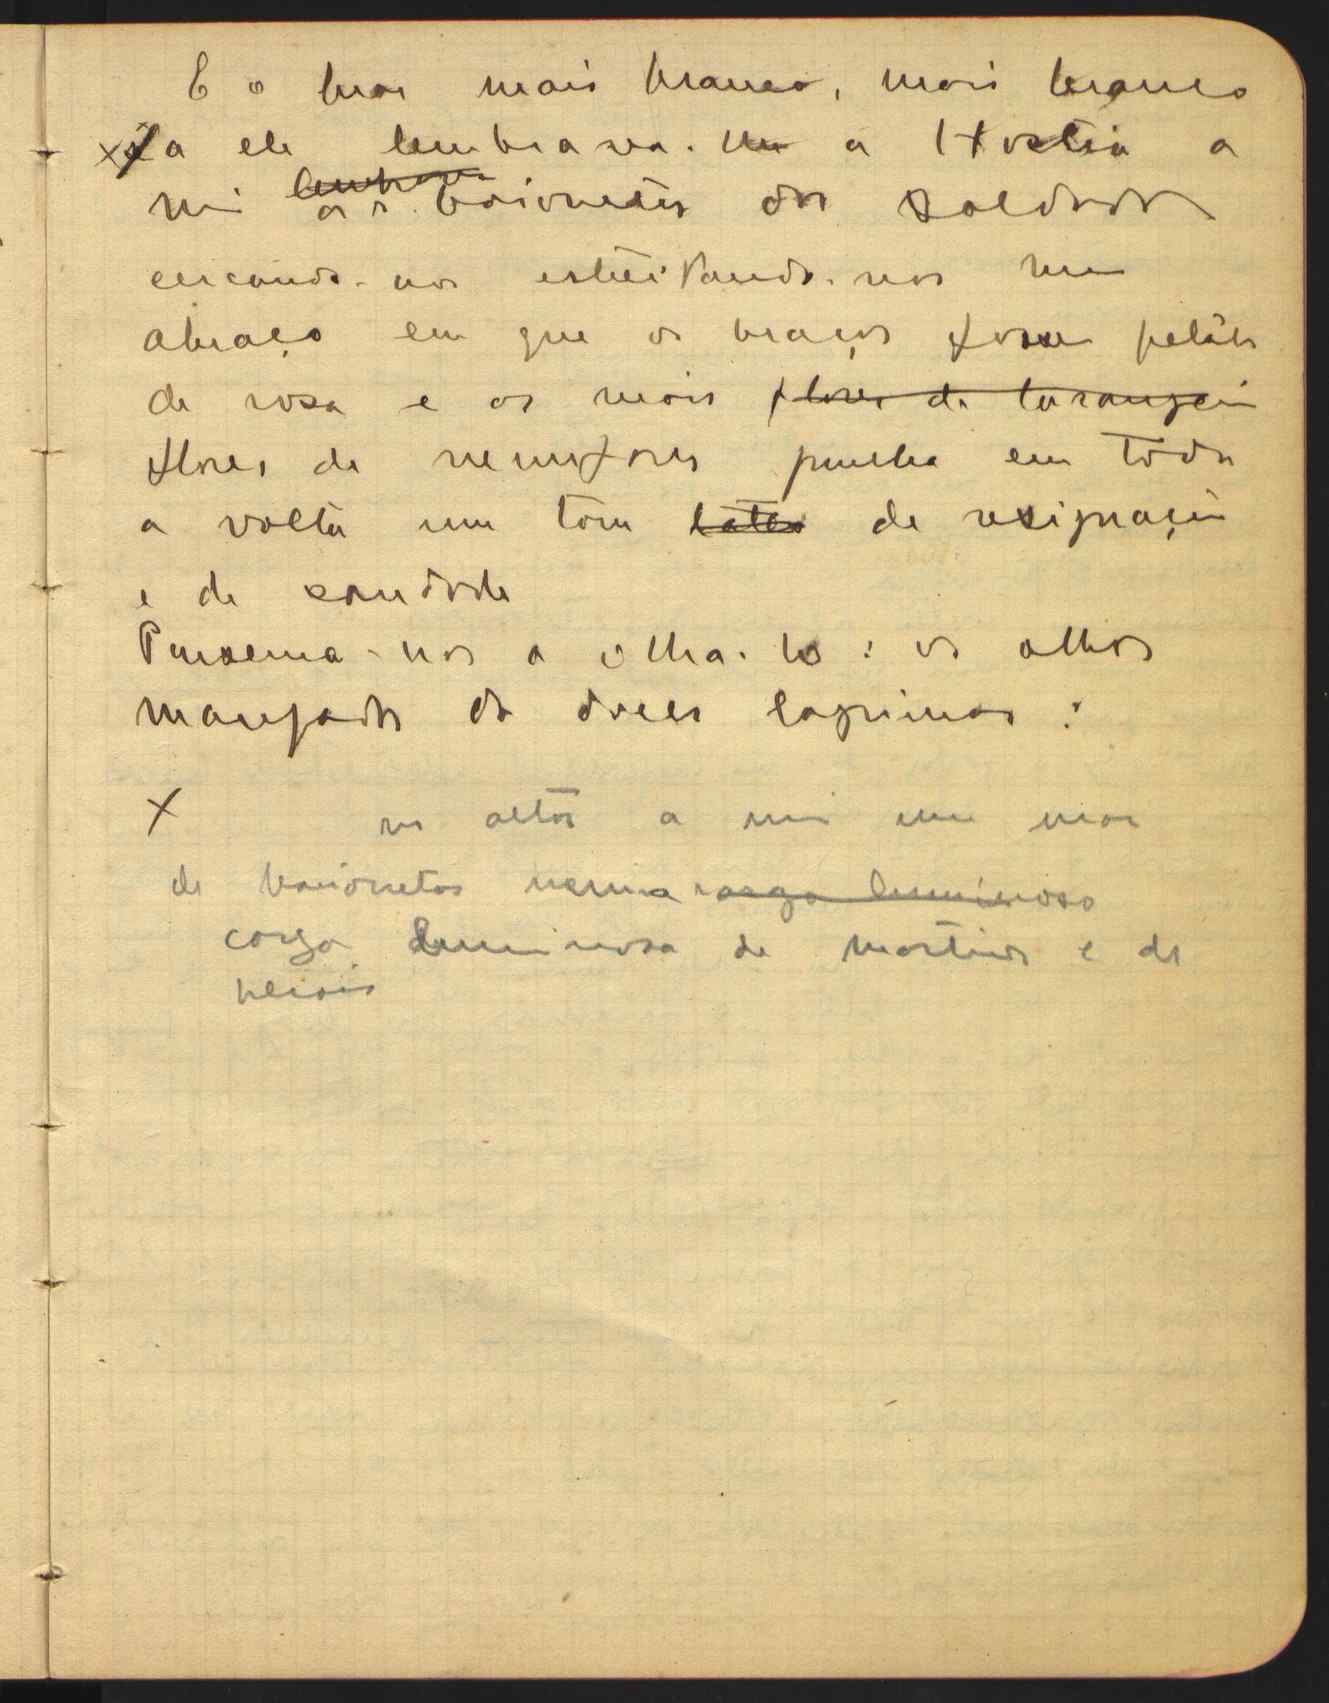 E o luar mais branco, mais branco
a ele lembrava. um a Hostia a
mi lembrava as baionetas dos soldados
cercando-nos estreitando-nos num
abraço em que os braços fossem petálas
de rosa e as mãos flores de laranjei
flores de nenufares punha em toda
a volta um tom de resignação
e de saudade
Puzema-nos a olha-lo: os olhos
marejados de doces lagrimas:
X os altos a mi um mar
de baionetas numa carga luminosa
carga luminosa de martires e de
herois